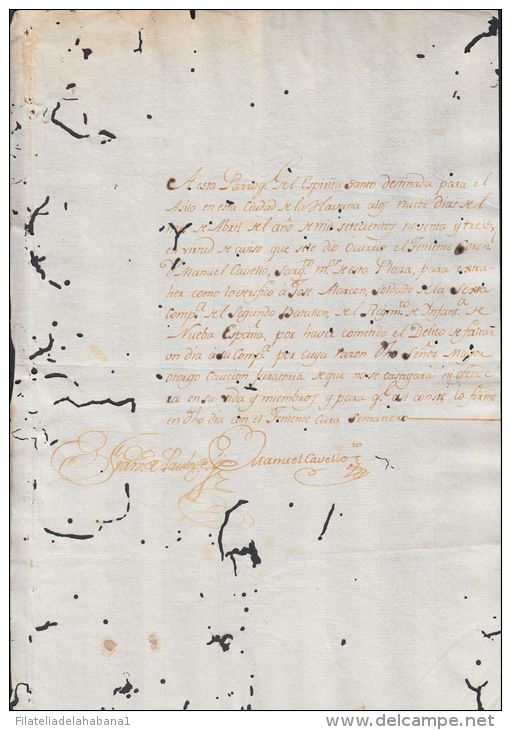 A esta Parroq.l del Espiritu Santo destinada para el
Asilo en esta Ciudad de la Havana alos nuebe dias del
mes de Abril del año de mil setecientos noventa y tres,
en virtud de aviso que se le dio Ocurrio el Teniente Coron.l
D Manuel Cavello, Sarg.to m.or de esta Plaza, para extra
her como lo verifico a Jose Alarcon, Soldado de la Sexta
Comp.a del Segundo Batallon, del Regim.to de Infant.a de
Nueba España, por haver cometido el Delito de faltar
un dia a su Comp.a por cuya razon dho Señor Mayor
otorgo Caucion juratoria de que no se castigara ni ofende
ra en su vida y miembros y para q.e asi conste lo firmo
en dho dia con el Teniente Cura Semanero
Fran.co de Paula
Manuel Cavello
Filateliadelahabana1
www.delcampe.net